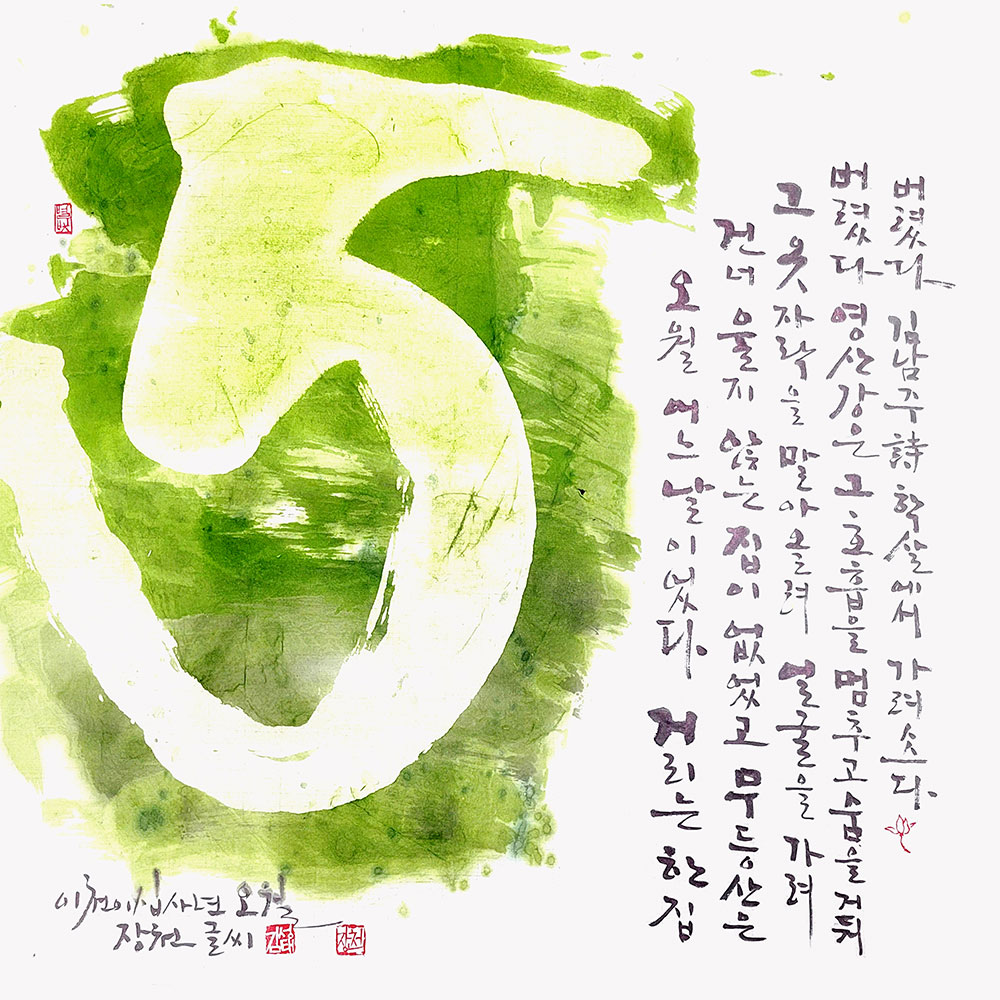 5
오월 어느 날이었다. 거리는 한 집
건너 울지 않는 집이 없었고 무등산은
그 옷자락을 말아올려 얼굴을 가려
버렸다 영산강은 그 호흡을 멈추고 숨을 거둬
버렸다. 김남주 詩 학살에서 가려쓰다.
이천이십사년 오월
장천 글씨